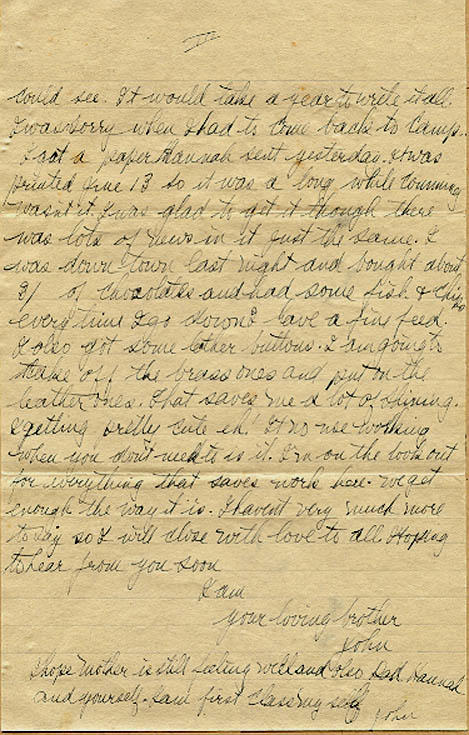 V
could see. It would take a year to write it all.
I was sorry when I had to come back to Camp.
I got a paper Hannah sent yesterday. It was
printed June 13 so it was a long while comming
wasn't it. I was glad to get it though there
was lots of news in it just the same. I
was down town last night and bought about
of chocolates and had some fish & chips
every time I go down I have a fine feed.
I also got some lether buttons. I am going to
take off the brass ones and put on the
leather ones. That saves me a lot of shining.
I getting pretty cute eh! It no use working
when you don't need to is it. I'm on the look out
for everything that saves work here. we get
enough the way it is. I havent very much more
to say so I will close with love to all. Hoping
to hear from you soon
I am
your loving brother
John
I hope Mother is still feeling well and also Dad, Hannah
and yourself. I am first class my self
John